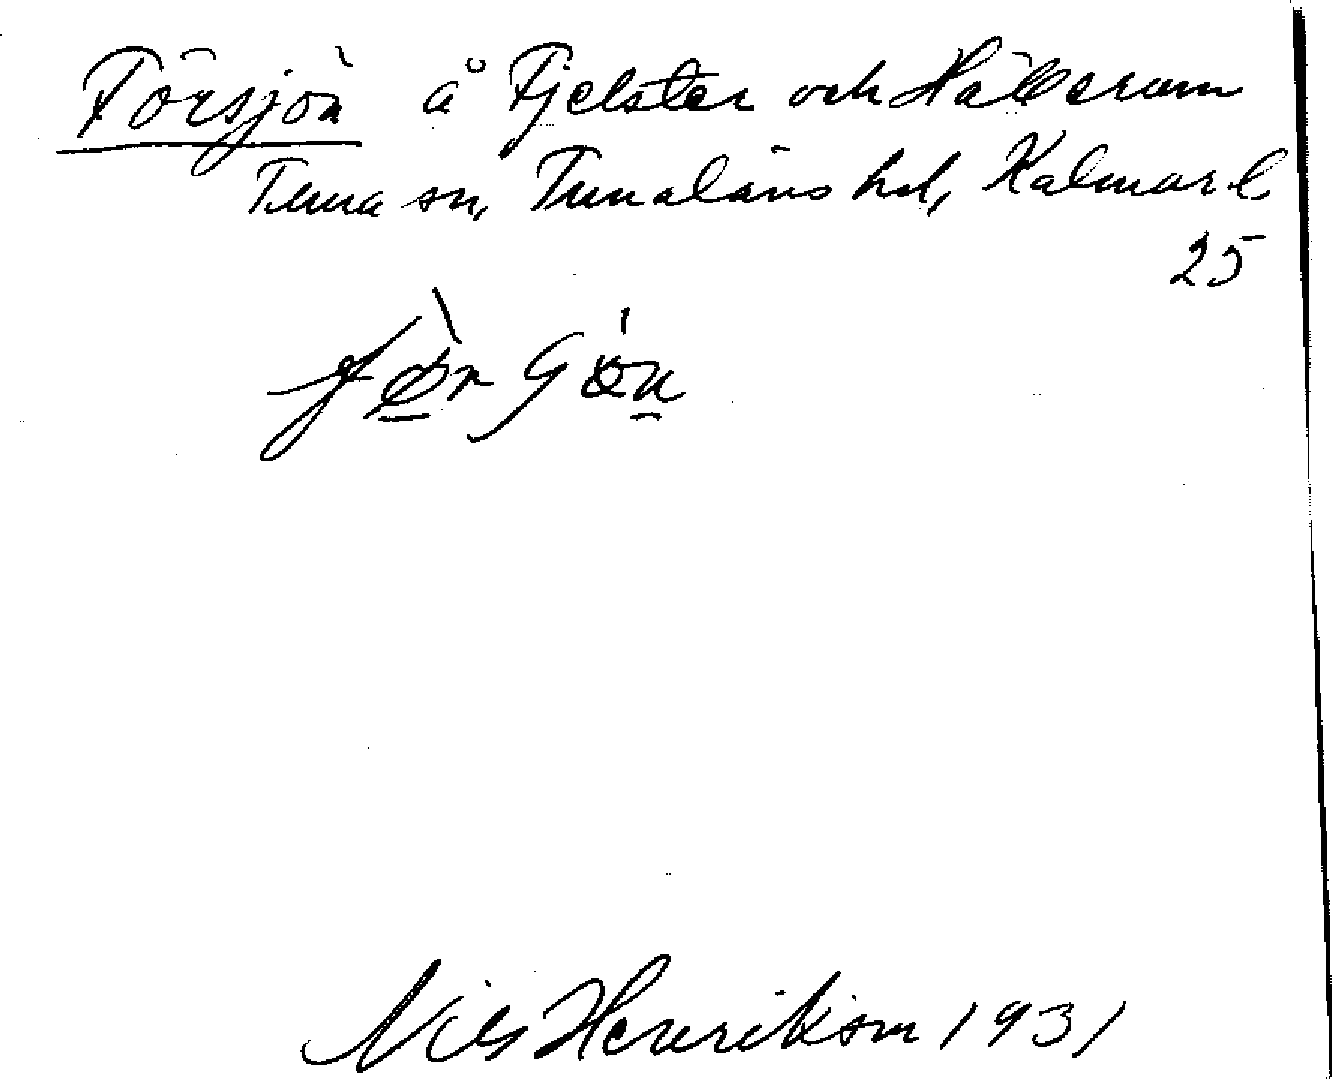 Försjön å Fjelster och Hälleram
Tuna sn, Tunaläns hd, Kalmar l
25
Nils Henrikson 1931